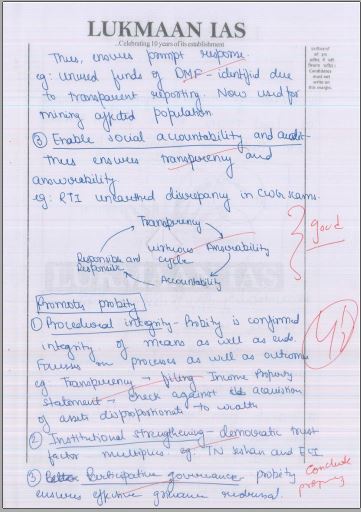 LUKMAAN IAS
Celebrating 10 years of its establishment
Candidates must not write on this margin.
Thus, ensures prompt response.
eg: unused funds of DMF - identifid due
to transparent reporting. Now used for
mining affected population.
③ Enable social accountability and audit-
thus ensures transparency and
answerability.
eg: RTI unearthed discrepancy in CWG scams.
Transparency
virtuous cycle
Answerability
Accountability
Responsible and
Responsive
good
Promotes probity
① Procedural integrity - Probity is confirmed
integrity of means as well as ends.
Focuses on processes as well as outcome
eg Transparency → filing Income Property
statement → check against acquisition
of assets disproportionate to wealth
② Institutional strengthening - democratic trust
factor multiplies eg. TN Seshan and ECI
③ Participative governance probity
ensures effective grievance redressal.
Conclude
properly